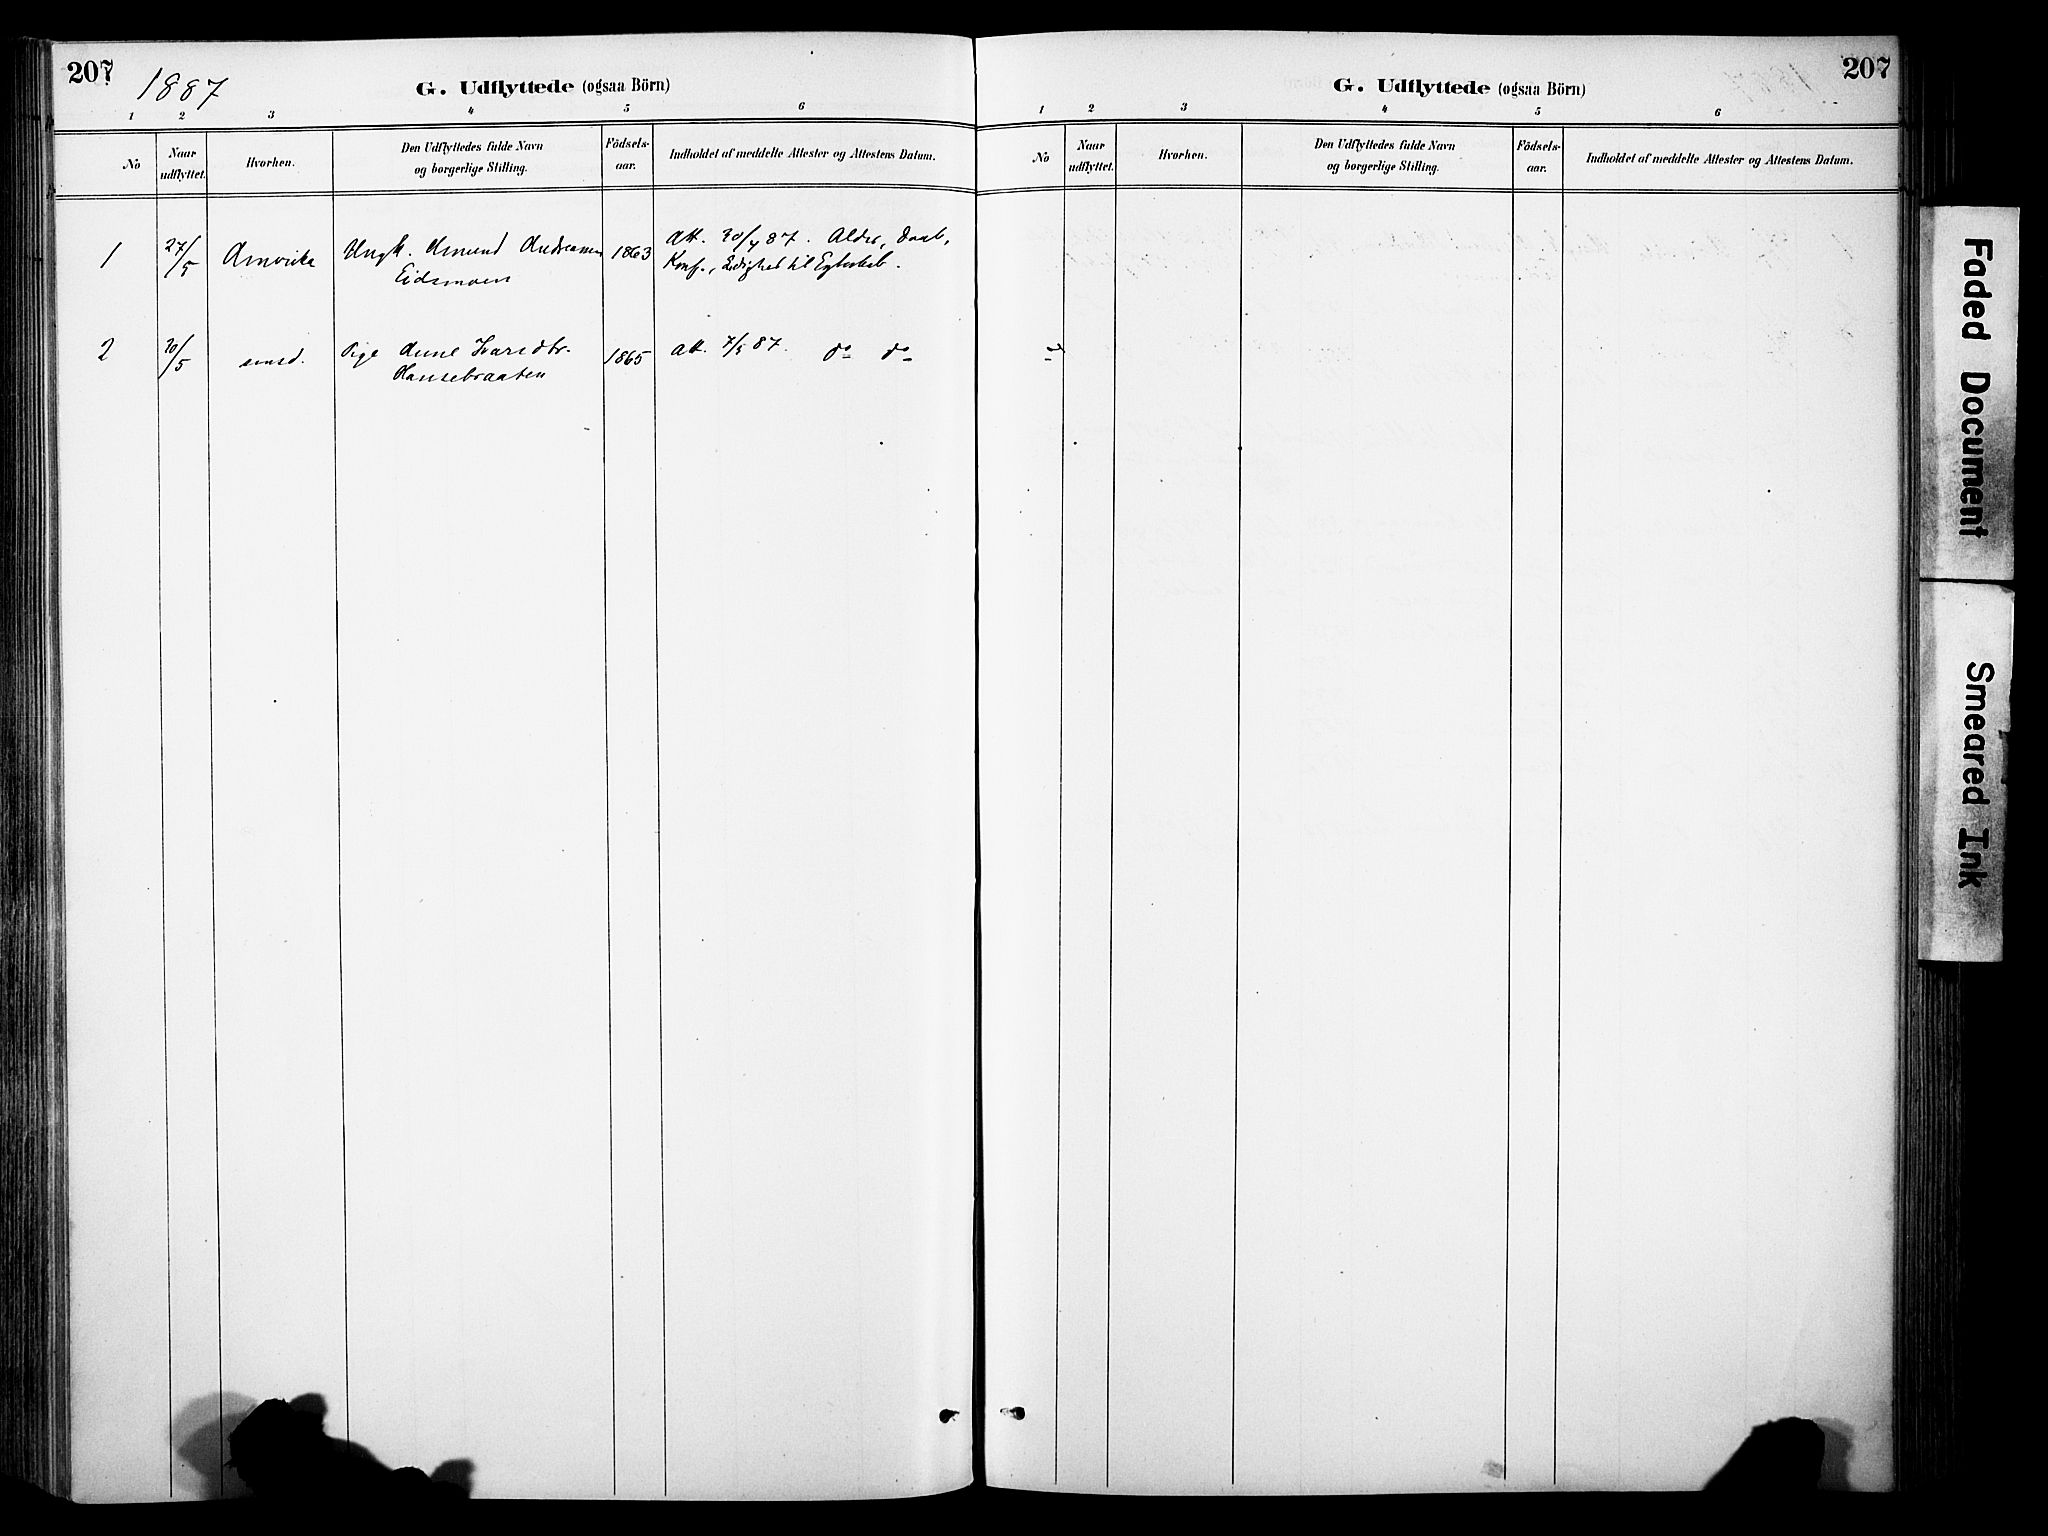 207
1887
G. Udflyttede (ogsaa Börn)
1 2 3 4 5 6
No
Naar udflyttet.
Hvorhen.
Den Udflyttedes fulde Navn og borgerlige Stilling.
Födsels-aar.
Indholdet af meddelte Attester og Attestens Datum.
1 27/5 Amerika Ungk. Amund Andreassen 1863 Att. 30/4 87. Alder, Daab,
Eidsmoen Konf., Ledighed til Egteskab.
2 30/5 smsd. Pige Anne Ivarsdtr. 1865 Att. 7/5 87. do do
Hansebraaten
207
G. Udflyttede (ogsaa Börn)
1 2 3 4 5 6
No
Naar udflyttet.
Hvorhen.
Den Udflyttedes fulde Navn og borgerlige Stilling.
Födsels-aar.
Indholdet af meddelte Attester og Attestens Datum.
Faded Document
Smeared Ink